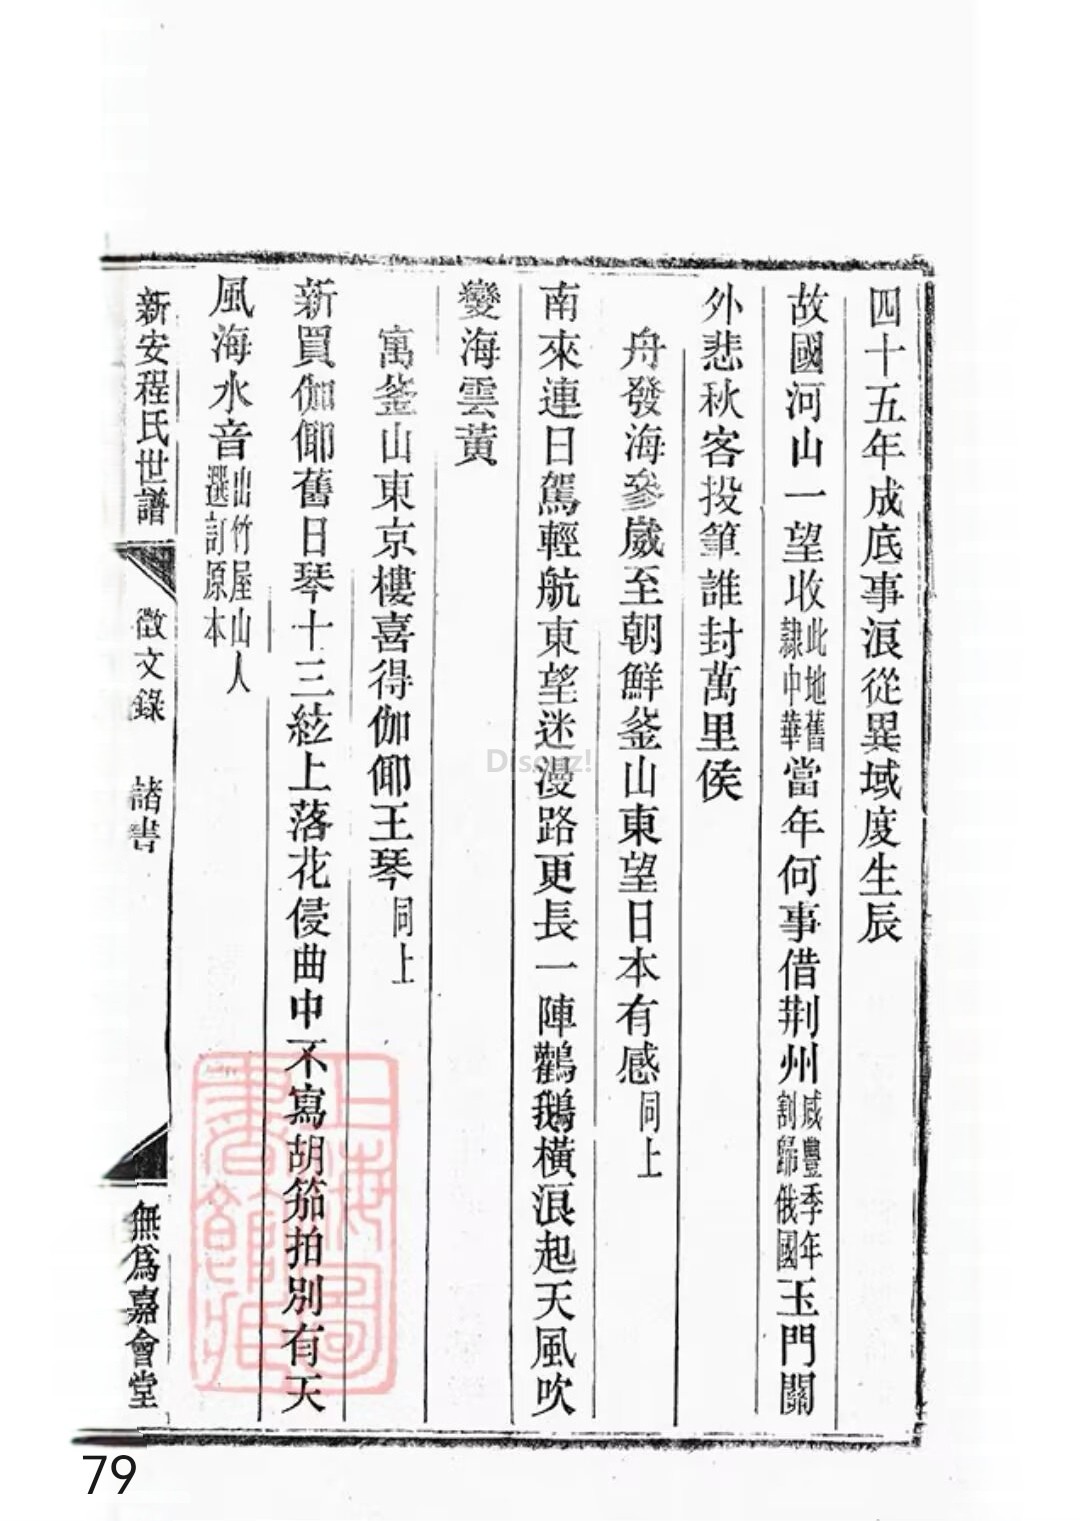 四十五年成底事浪從異域度生辰
故國河山一望收此地舊隸中華當年何事借荆州咸豐季年割歸俄國玉門關
外悲秋客投筆誰封萬里侯
舟發海參崴至朝鮮釜山東望日本有感同上
南來連日駕輕航東望迷漫路更長一陣鸛鵝橫浪起天風吹
變海雲黃
寓釜山東京樓喜得伽倻王琴同上
新買伽倻舊日琴十三絃上落花侵曲中不寫胡笳拍別有天
風海水音山竹屋山人選訂原本
新安程氏世譜
徵文錄
諸書
無爲嘉會堂
上海圖書館藏
Disoyz!
79